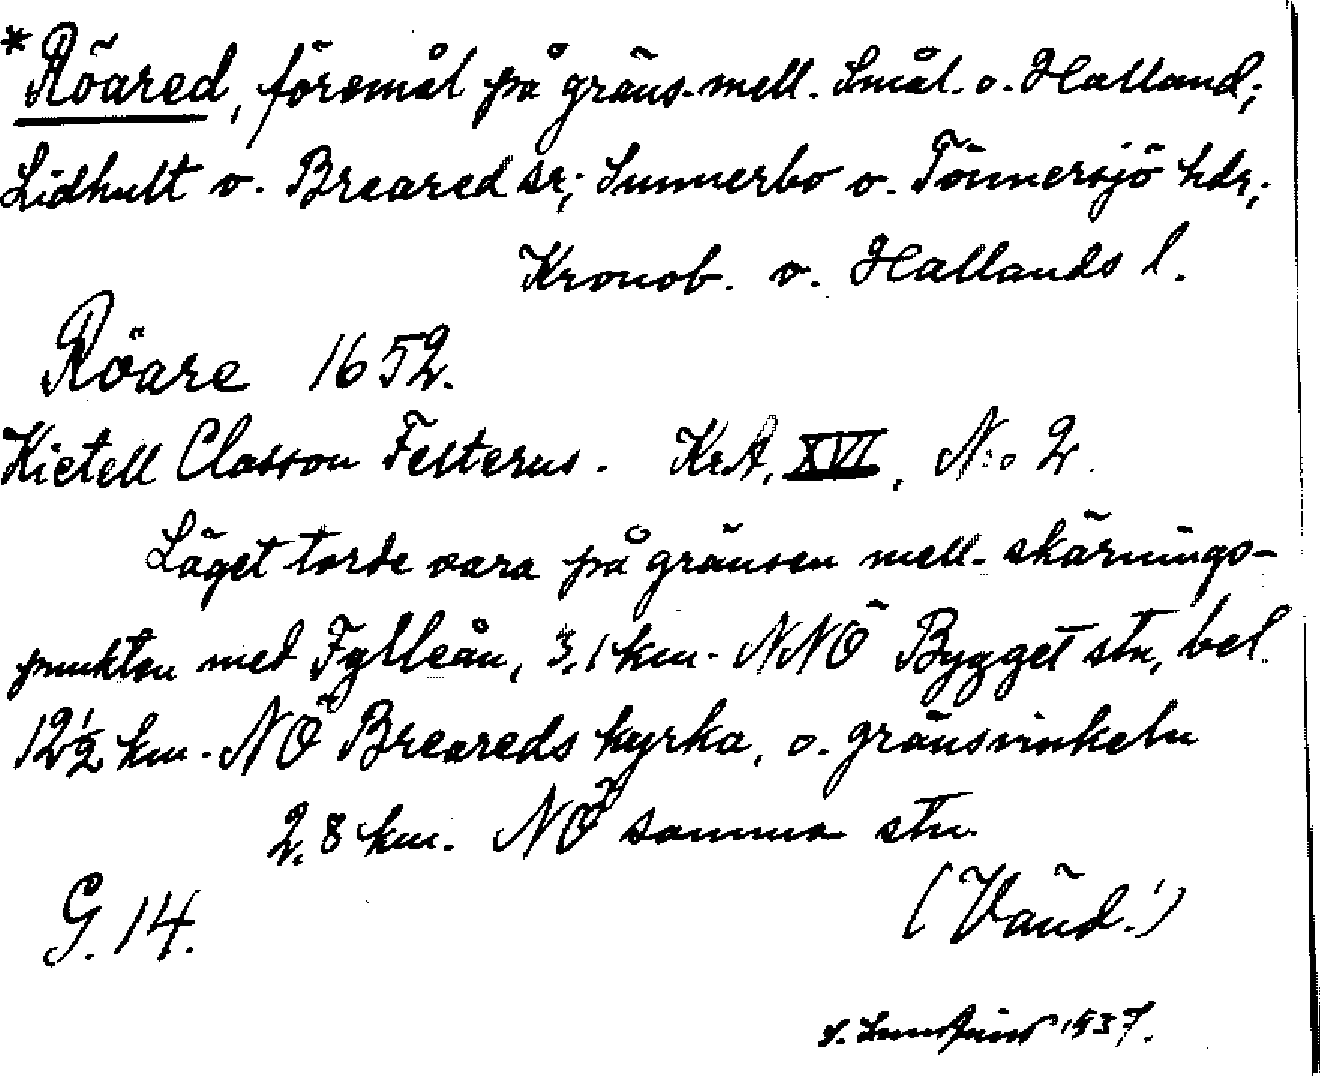 *Röared, föremål på gräns. mell. Smål. o. Halland;
Lidhult o. Breared sr; Sunnerbo o. Tönnersjö hdr;
Kronob. o. Hallands l.
Röare 1652.
Kietell Classon Felterus. KrA, XVI, N:o 2.
Läget torde vara på gränsen mell. skärnings-
punkten med Fylleån, 3,1 km. NNÖ Bygget stn, bel.
12½ km. NÖ Breareds kyrka, o. gränsvinkeln
2,8 km. NÖ samma stn.
G. 14. (Vänd!)
1937.